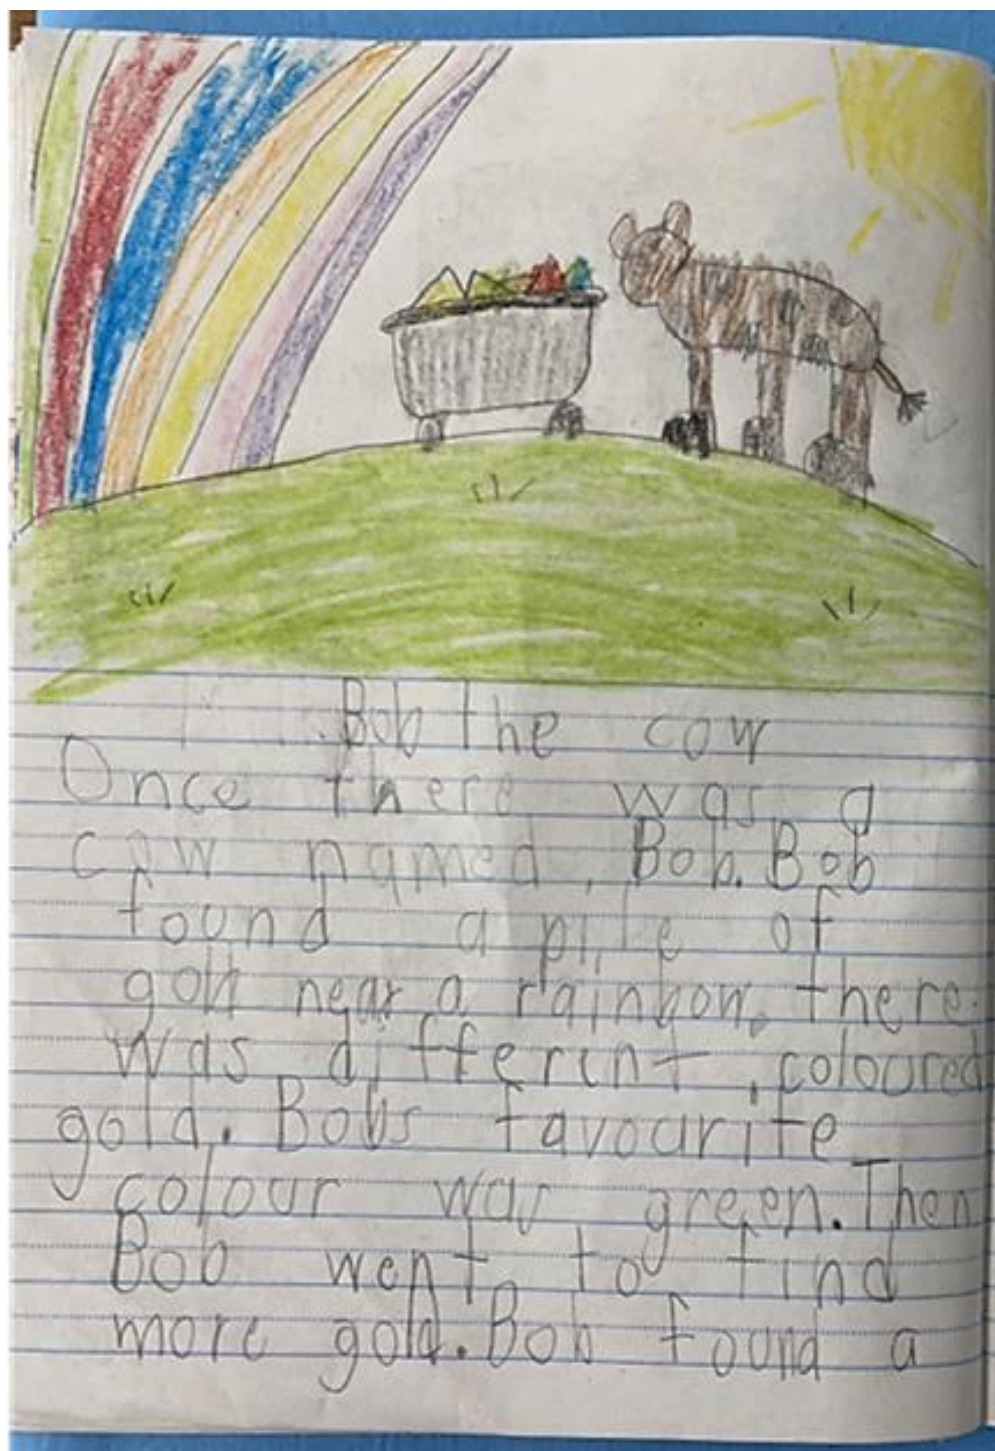 Bob the cow
Once there was a
cow named Bob. Bob
found a pile of
gold near a rainbow. there
was different coloured
gold. Bobs favourite
colour was green. Then
Bob went to find
more gold. Bob found a